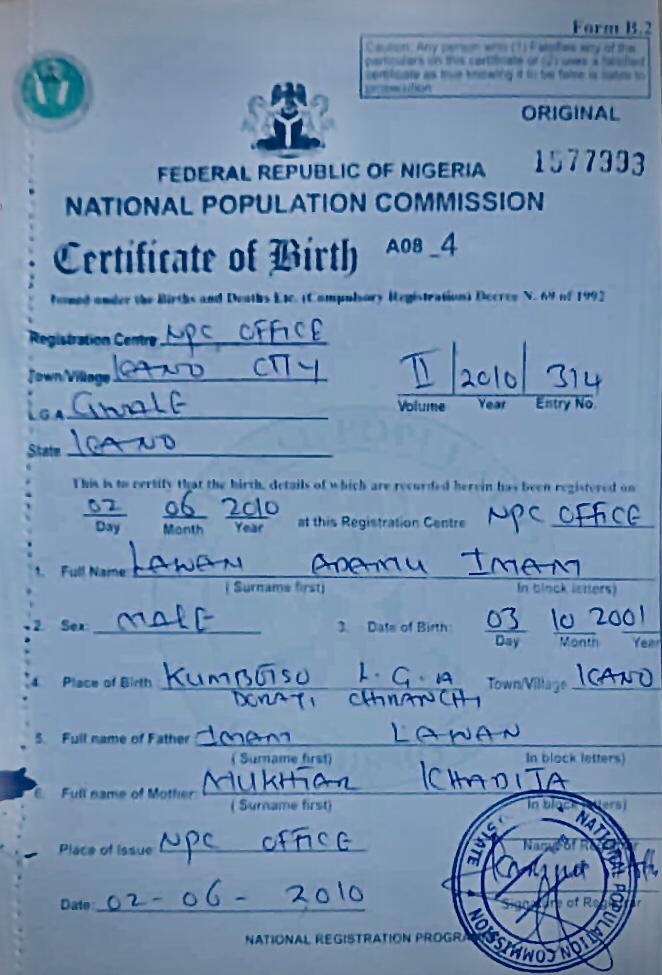 Form B.2
Caution: Any person who (1) Falsifies any of the
particulars on this certificate or (2) uses a falsified
certificate as true knowing it to be false is liable to
prosecution
ORIGINAL
1577993
FEDERAL REPUBLIC OF NIGERIA
NATIONAL POPULATION COMMISSION
Certificate of Birth A08_4
Issued under the Births and Deaths Etc. (Compulsory Registration) Decree N. 69 of 1992
Registration Centre NPC OFFICE
Town/Village KANO CITY
II 2010 314
Volume Year Entry No.
L.G.A GWALE
State KANO
This is to certify that the birth, details of which are recorded herein has been registered on
02 06 2010 at this Registration Centre NPC OFFICE
Day Month Year
1. Full Name LAWAN ADAMU IMAM
(Surname first) In block letters)
2. Sex: MALE 3. Date of Birth: 03 10 2001
Day Month Year
4. Place of Birth KUMBOTSO L.G.A Town/Village KANO
CHIRANCHI
5. Full name of Father IMAM LAWAN
(Surname first) In block letters)
6. Full name of Mother: MUKHTAR KHADIJA
(Surname first) In block letters)
Place of Issue NPC OFFICE
Name of Registrar
Signature of Registrar
Date: 02-06-2010
NATIONAL POPULATION COMMISSION
STATE
NATIONAL REGISTRATION